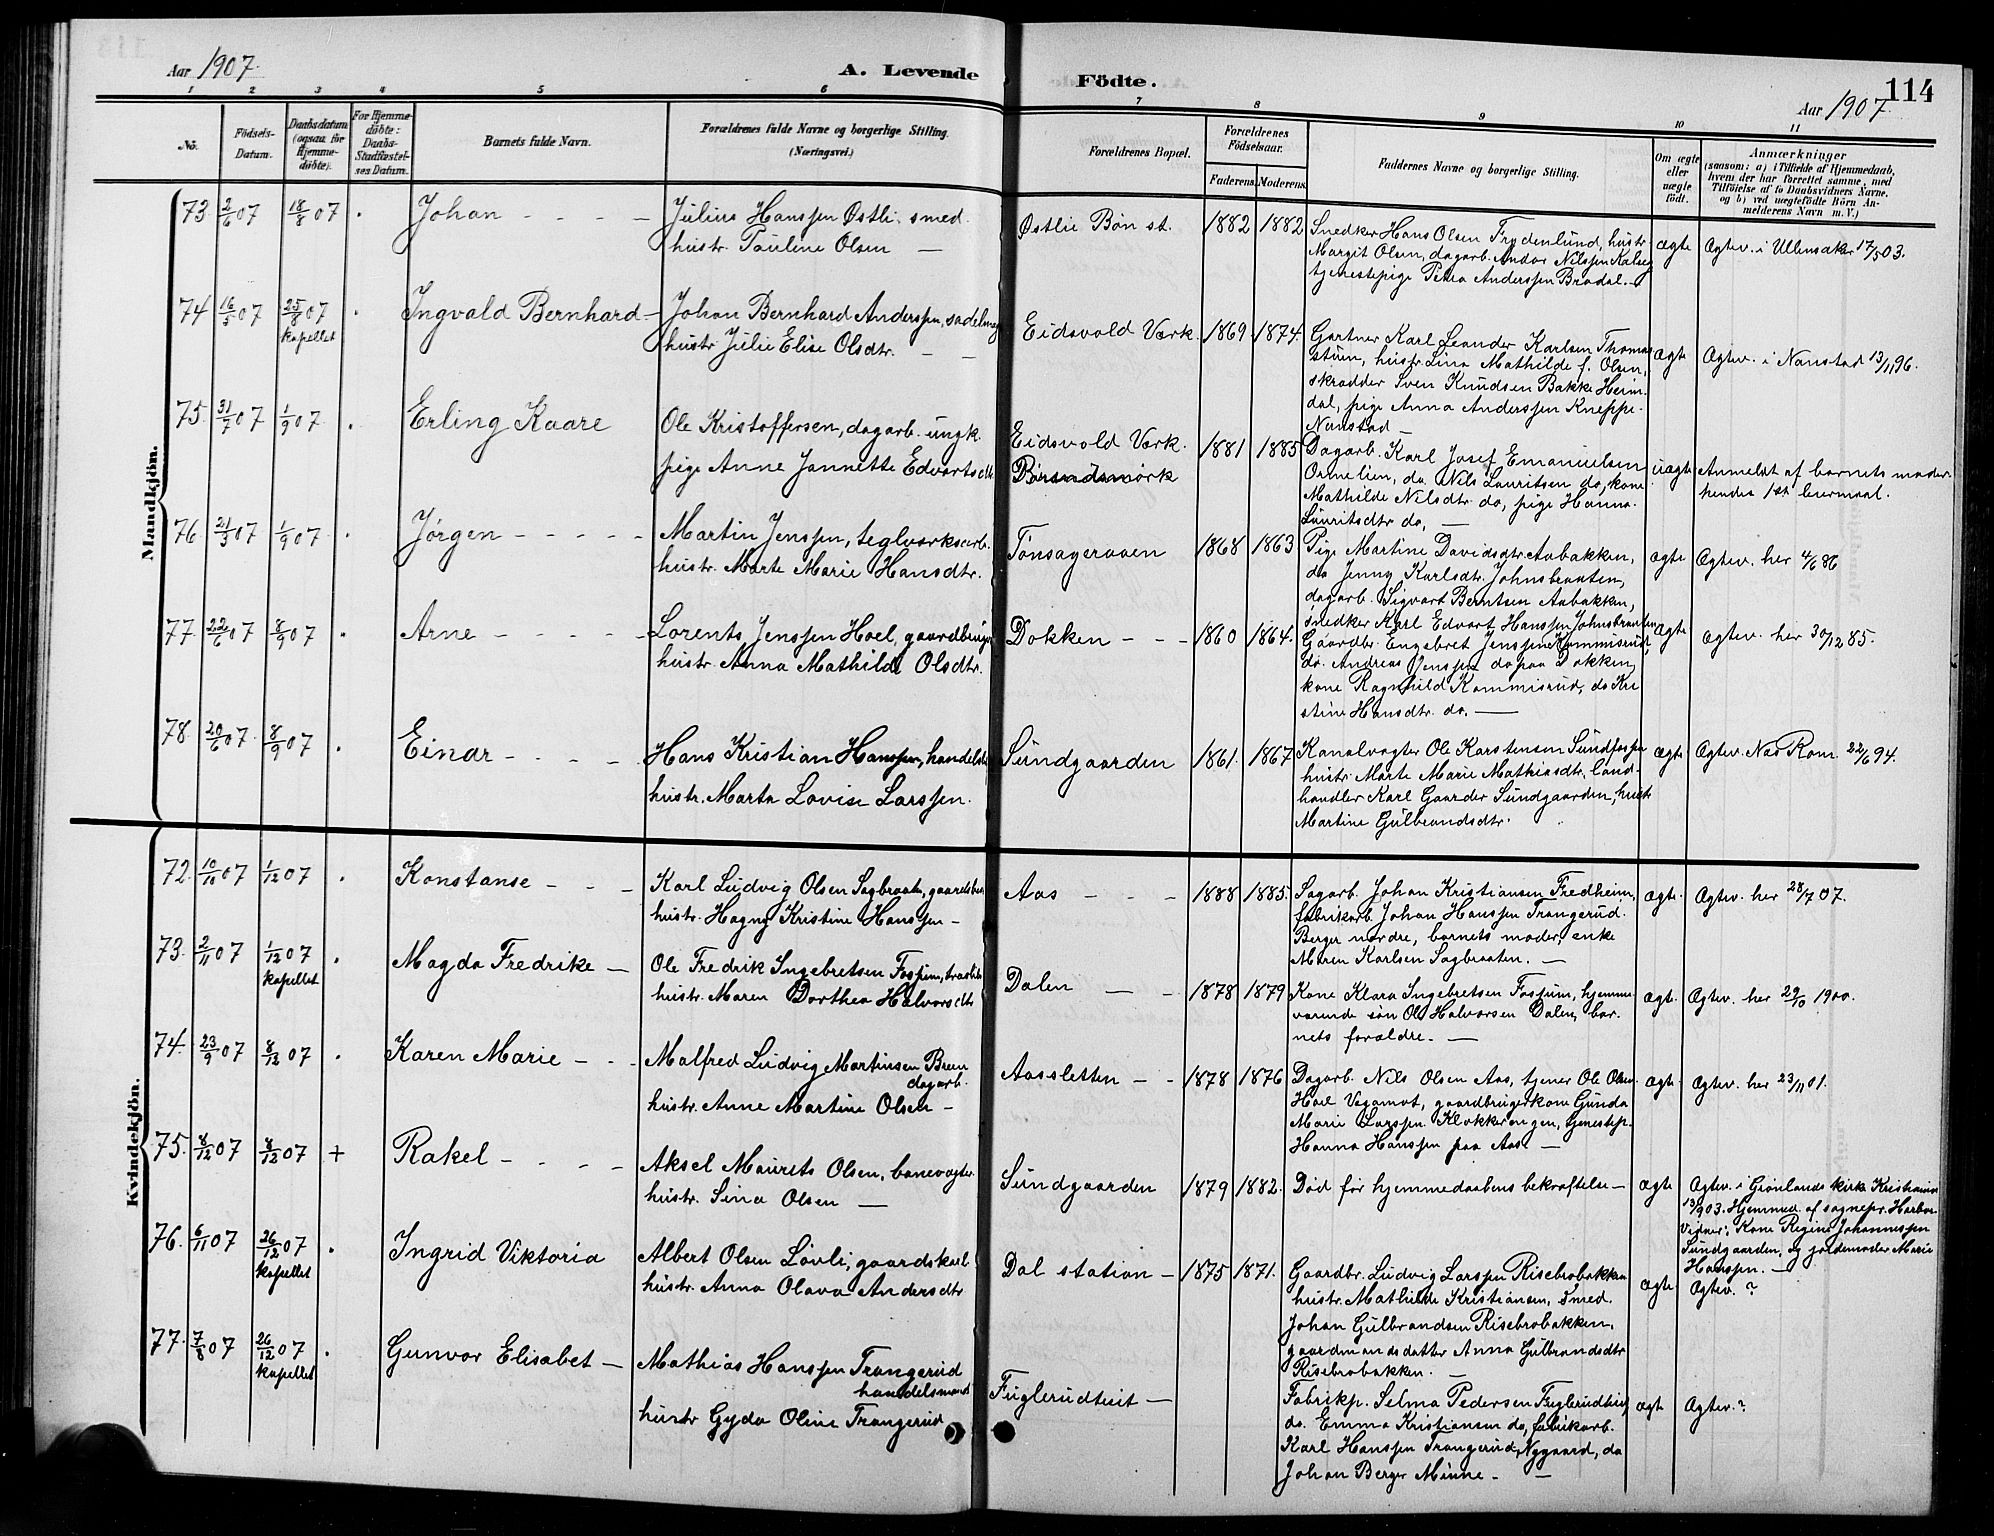 Aar 1907.
A. Levende Födte.
114
Aar 1907
1 2 3 4 5 6 7 8 9 10 11
No.
Födsels-Datum.
Daabsdatum (ogsaa for Hjemme-döbte).
For Hjemme-döbte: Daabs-Stadfæstel-ses Datum.
Barnets fulde Navn.
Forældrenes fulde Navne og borgerlige Stilling. (Næringsvei.)
Forældrenes Bopæl.
Forældrenes Födselsaar.
Faderens. Moderens.
Faddernes Navne og borgerlige Stilling.
Om ægte eller uægte födt.
Anmærkninger
(saasom: a) i Tilfælde af Hjemmedaab, hvem der har forrettet samme, med Tilföielse af to Daabsvidners Navne. og b) ved uægtefödte Börn An-melderens Navn m. V.)
Mandkjön.
73 2/6 07 18/8 07 Johan
Julius Hanssen Østli, smed.
hustr. Pauline Olsen
Østlie Bøn st. 1882 1882
Snedker Hans Olsen Frydenlund, hustr.
Margit Olsen, dagarb. Andor Nilssen
tjenestepige Petra Anderssen Brodal.
ægte Ægtev. i Ullensaker 17/5 03.
74 16/5 07 25/8 07 kapellet Ingvald Bernhard
Johan Bernhard Anderssen, sadelmag
hustr Julie Elise Olsdtr.
Eidsvold Værk. 1869 1874.
Gartner Karl Leander Karlsen Thomas
stuen, hustr. Lina Mathilde f. Olsen,
skrædder Sven Knudsen Bakke Heim-
dal, pige Anna Anderssen Kneppe.
Nanstad
ægte Ægtev. i Nanstad 13/11 96.
75 31/7 07 1/9 07 Erling Kaare
Ole Kristoffersen, dagarb. ungk.
pige Anne Jannette Edvartsdtr
Eidsvold Værk.
1881 1885
Dagarb. Karl Josef Emanuelsen
Ormelien, do Nils Lauritsen do, kone
Mathilde Nilsdtr. do, pige Hanna
Lauritsdtr do,
uægte Anmeldt af barnets moder
hendes 1ste leiermaal.
76 21/3 07 1/9 07 Jørgen
Martin Jenssen, teglværksarb.
hustr. Marte Marie Hansdtr.
Tønsageraaen 1868 1863
Pige Martine Davidsdtr. Aabakken,
do Jenny Karlsdtr. Johnsbraaten,
dagarb. Sigvart Berntsen Aabakken,
snedker Karl Edvart Hanssen Johnsbraaten
ægte Ægtev. her 4/6 86
77 22/6 07 8/9 07 Arne
Lorents Jenssen Hoel, gaardbruger
hustr. Anna Mathilde Olsdtr.
Dokken 1860 1864.
Gaardbr. Engebret Jenssen Kommisrud,
do. Andreas Jenssen do paa Dokken,
kone Ragnhild Kommisrud, do Kri
stine Hansdtr. do.
ægte Ægtev. her 30/12 85.
78 20/6 07 8/9 07 Einar
Hans Kristian Hanssen, handelsb.
hustr. Marta Lovise Larssen.
Sundgaarden 1861. 1867
Kanalvogter Ole Karstensen Sundfossen
hustr. Marte Marie Mathiasdtr, land-
handler Karl Gaarder Sundgaarden, hustr
Martine Gulbrandsdtr.
ægte Ægtev. Næs Rom. 22/6 94.
Kvindekjön.
72. 10/10 07 1/12 07 Konstanse
Karl Ludvig Olsen Sagbraaten, gaardsbr.
hustr. Hagny Kristine Hanssen
Aas 1888 1885.
Sagarb. Johan Kristiansen Fredheim,
fabrikarb. Johan Hanssen Trangerud.
Berger nordre, barnets moder, enke
Maren Karlsen Sagbraaten.
ægte. Ægtev. her 28/7 07.
73. 2/11 07 1/12 07 kapellet Magda Fredrike
Ole Fredrik Ingebretsen Fossum,
hustr. Maren Dorthea Halvorsdtr
Dalen 1878 1879
Kone Klara Ingebretsen Fossum, hjemme
værende søn Ole Halvorsen Dalen, bar
nets forældre.
ægte. Ægtev. her 29/10 1900.
74. 23/9 07 8/12 07 Karen Marie
Malfred Ludvig Martinsen Bruen
dagarb.
hustr. Anne Martine Olsen
Aassletten 1878 1876
Dagarb. Nils Olsen Aas, tjener Ole Olsen
Hoel Vegamot, gaardbrugerkone Gunda
Marie Larssen Klokkerengen, tjenestep.
Hanna Hanssen paa Aas
ægte Ægtev. her 23/11 01.
75. 8/12 07 8/12 07 + Rakel
Aksel Maurits Olsen, banevogter
hustr. Lina Olsen
Sundgaarden 1879 1882.
Død før hjemmedaabens bekræftelse
ægte Ægtev. i Grønlands kirke Kristiania
13/9 03. Hjemmed. af sognepr. Horboe
Vidner: Kone Regine Johannessen
Sundgaarden, og jordemoder Marie
Hanssen.
76. 6/11 07 26/12 07 kapellet Ingrid Viktoria
Albert Olsen Løvli, gaardskarl
hustr. Anna Olava Andersdtr
Dal station 1875 1871.
Gaardbr. Ludvig Larssen Risebrobakken
hustr. Mathilde Kristiansen, smed.
Johan Gulbrandsen Risebrobakken,
gaardmandsdatter Anna Gulbrandsdtr
Risebrobakken.
ægte Ægtev. ?
77. 7/8 07 26/12 07 kapellet Gunvor Elisabet
Mathias Hanssen Trangerud
handelsmand
hustr Gyda Oline Trangerud
Fuglerudtveit
Fabrikp. Selma Pedersen Fuglerudtveit
do. Emma Kristiansen do, fabrikarb.
Karl Hanssen Trangerud, Nygaard, do
Johan Berger Minne
ægte Ægtev. ?